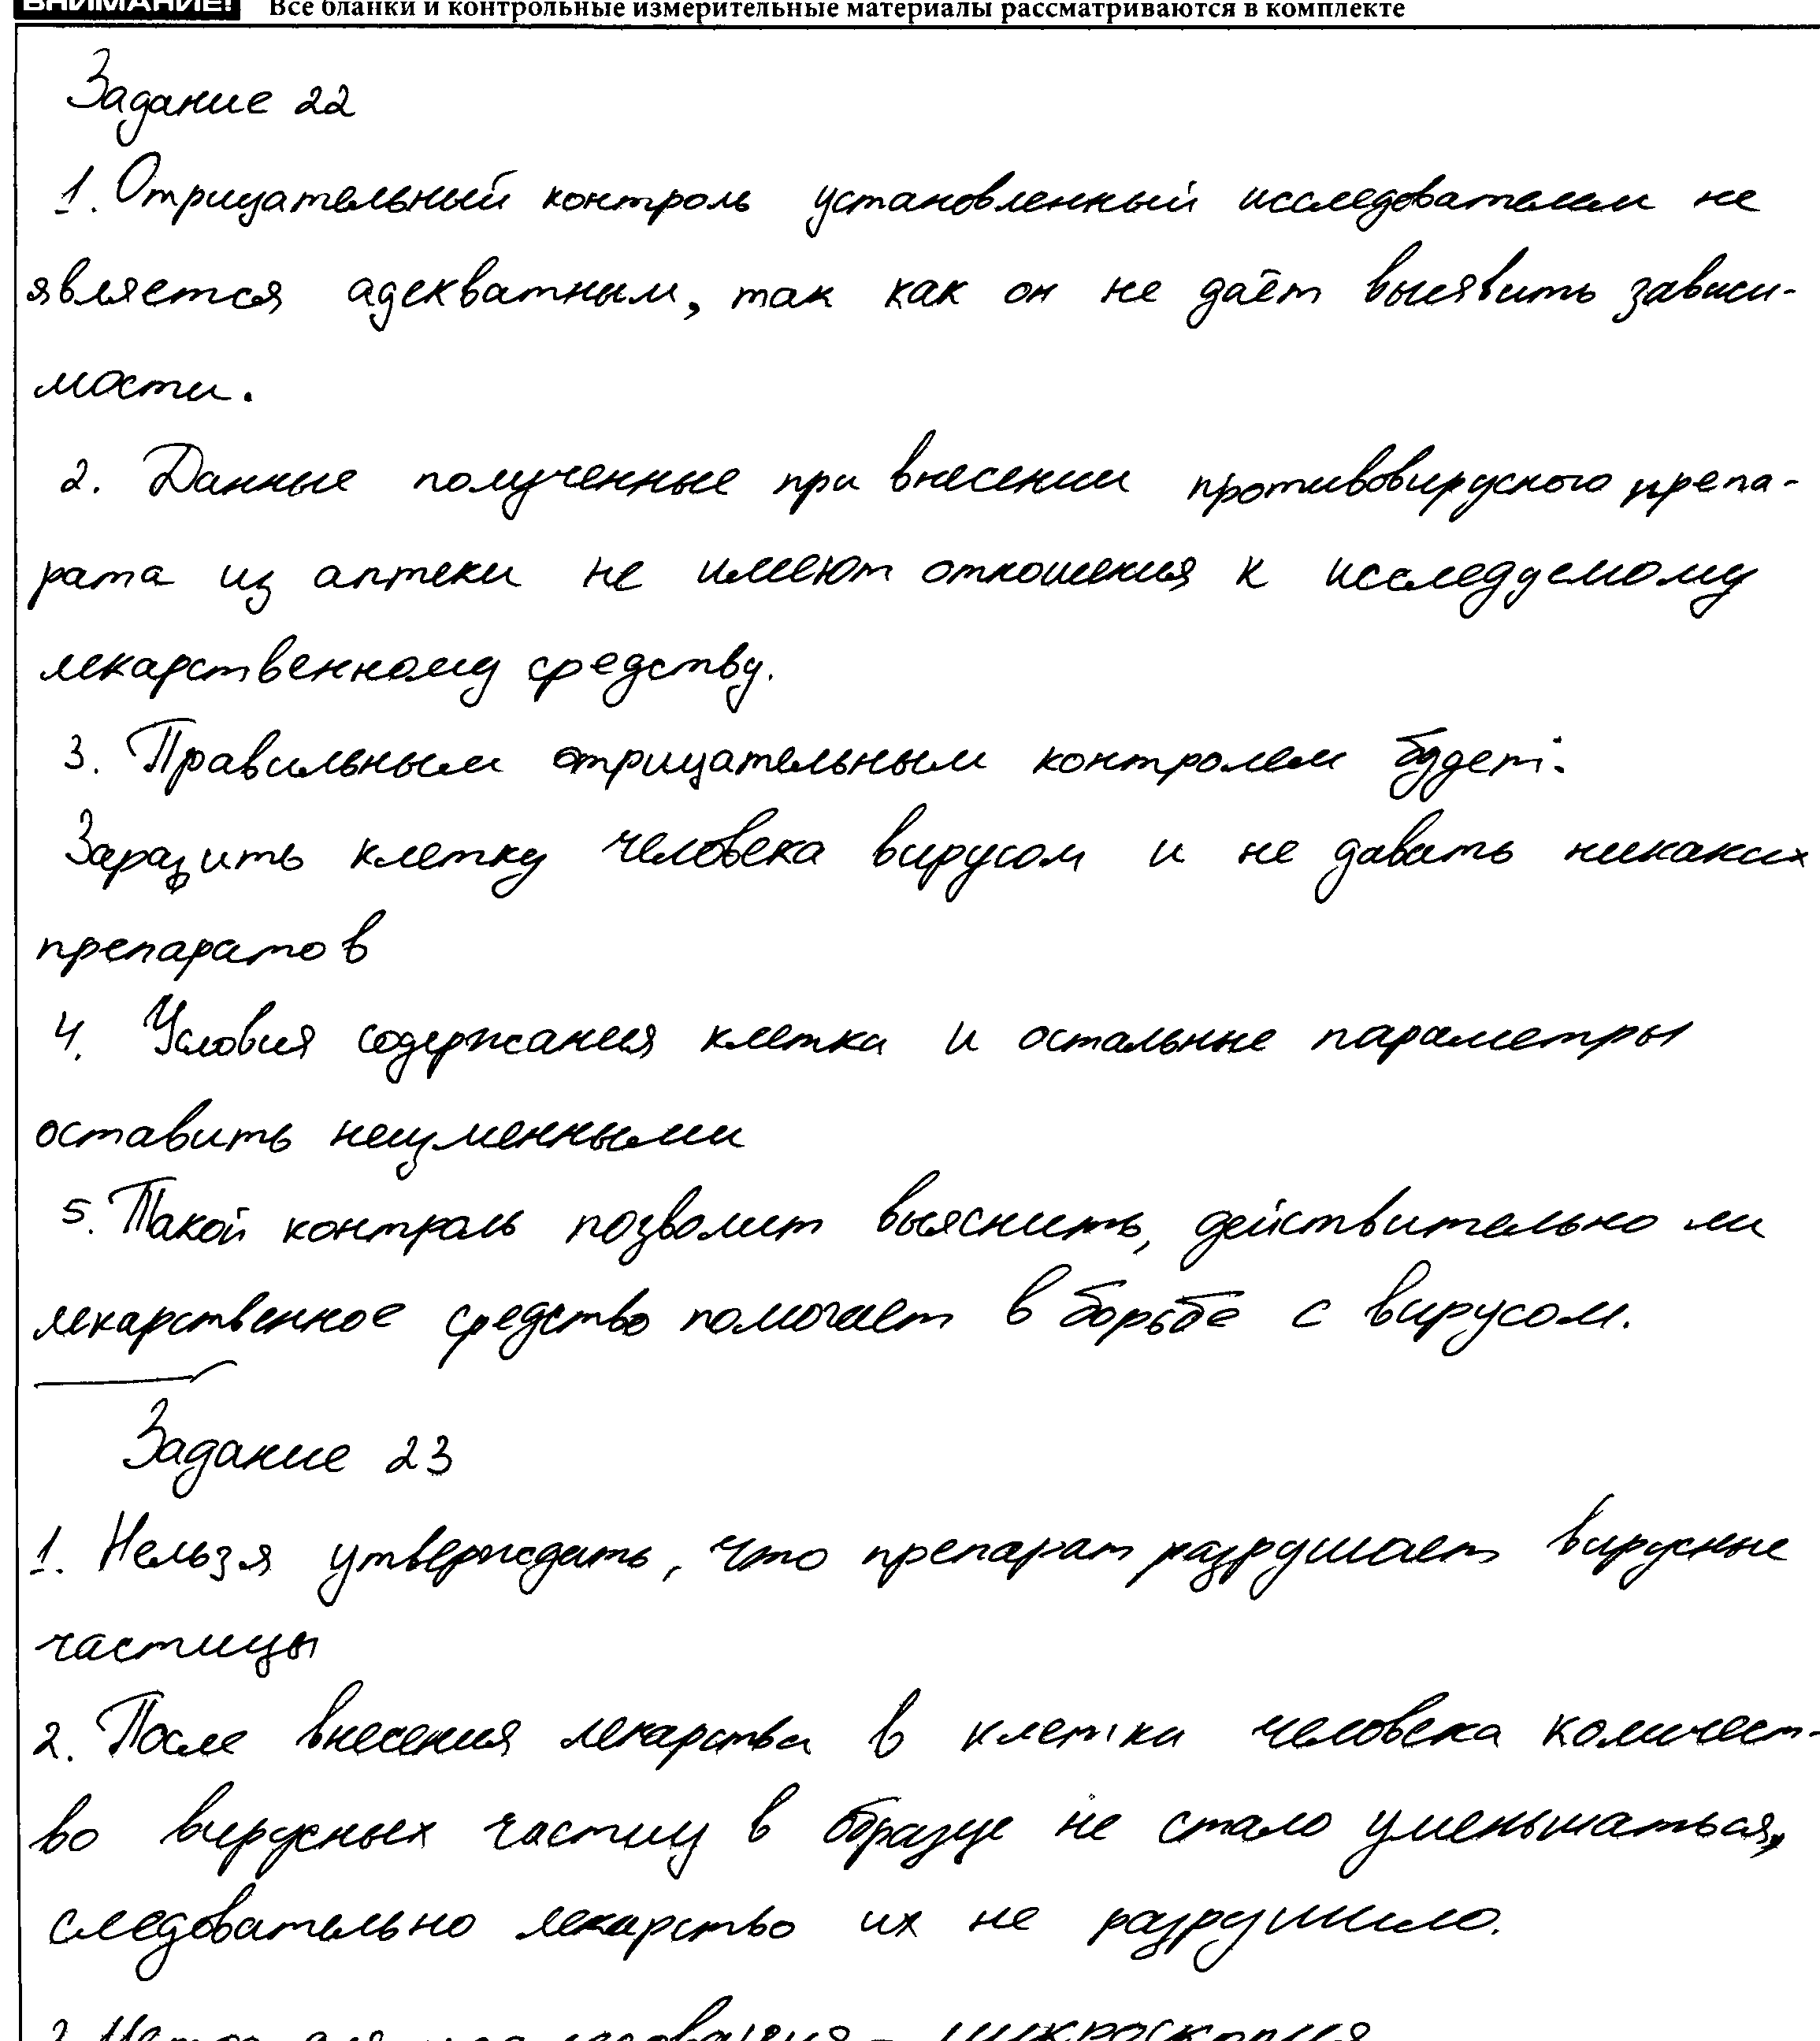 ВНИМАНИЕ! Все бланки и контрольные измерительные материалы рассматриваются в комплекте
Задание 22
1. Отрицательный контроль установленный исследователем не
является адекватным, так как он не даёт выявить зависи-
мости.
2. Данные полученные при внесении противовирусного препа-
рата из аптеки не имеют отношения к исследуемому
лекарственному средству.
3. Правильным отрицательным контролем будет:
Заразить клетку человека вирусом и не давать никаких
препаратов
4. Условия содержания клетки и остальные параметры
оставить неизменными
5. Такой контроль позволит выяснить, действительно ли
лекарственное средство помогает в борьбе с вирусом.
Задание 23
1. Нельзя утверждать, что препарат разрушает вирусные
частицы
2. После внесения лекарства в клетки человека количест-
во вирусных частиц в образце не стало уменьшаться,
следовательно лекарство их не разрушило.
3. Метод для исследования - микроскопия